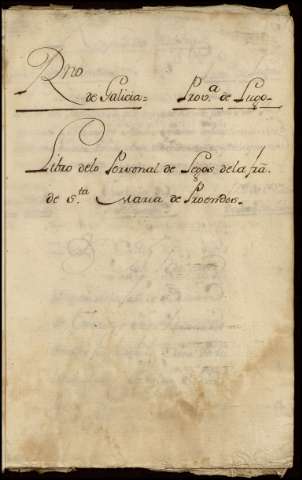 Rno
de Galicia= Prov.a de Lugo-
Libro delo Personal de Legos dela frã.
de S.ta Maria de Proendos-